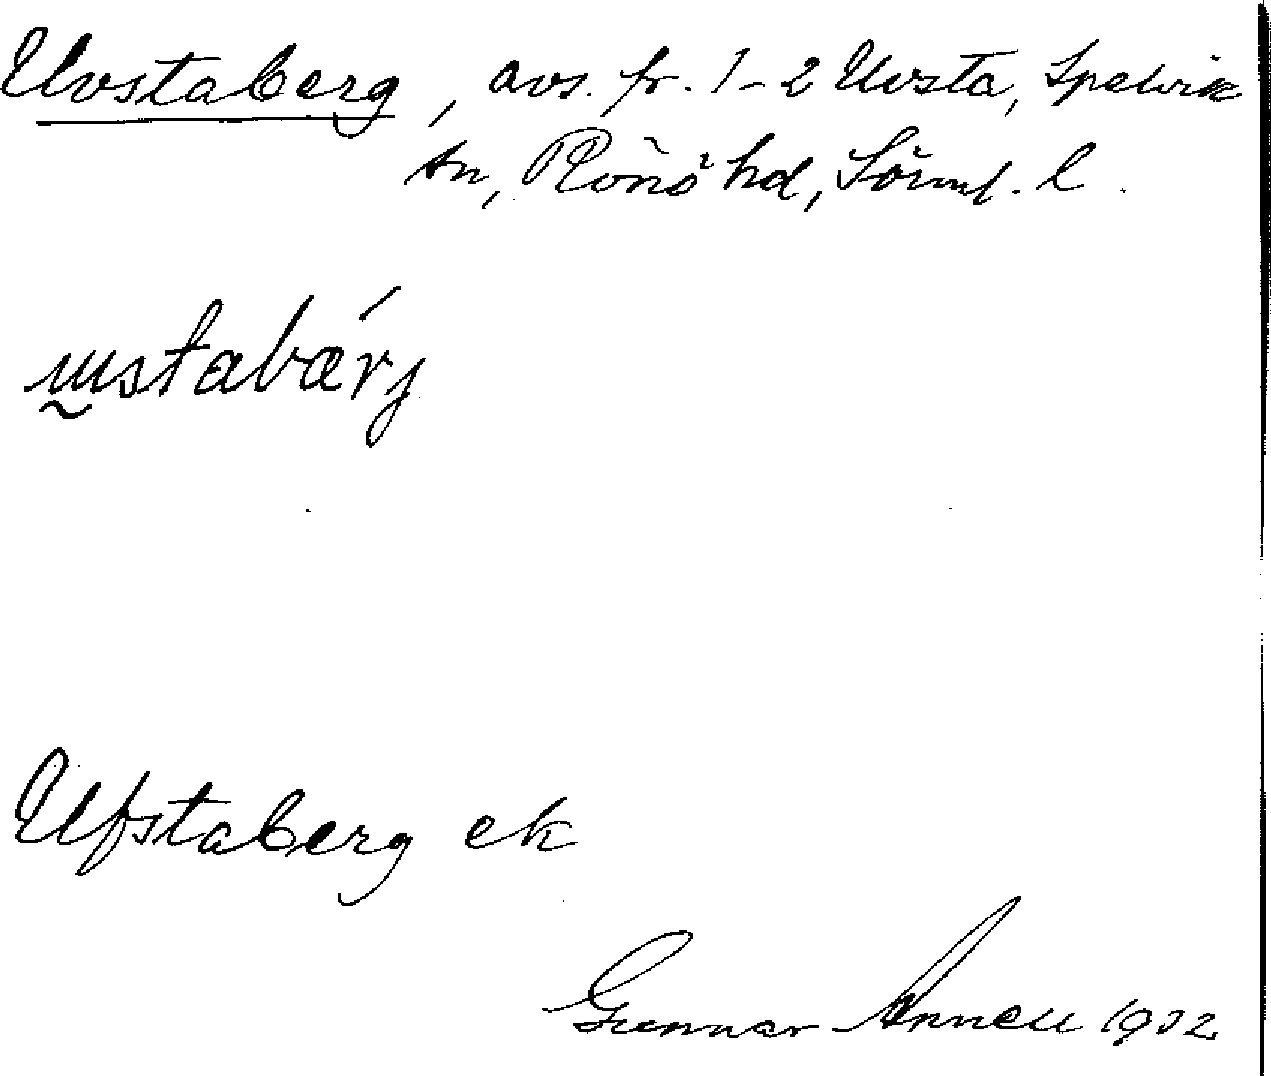 Uvstaberg, avs. fr. 1-2 Uvsta, Spelvik
sn, Rönö hd, Sörml. l.
ustabärj
Ufstaberg ek
Gunnar Annell 1932